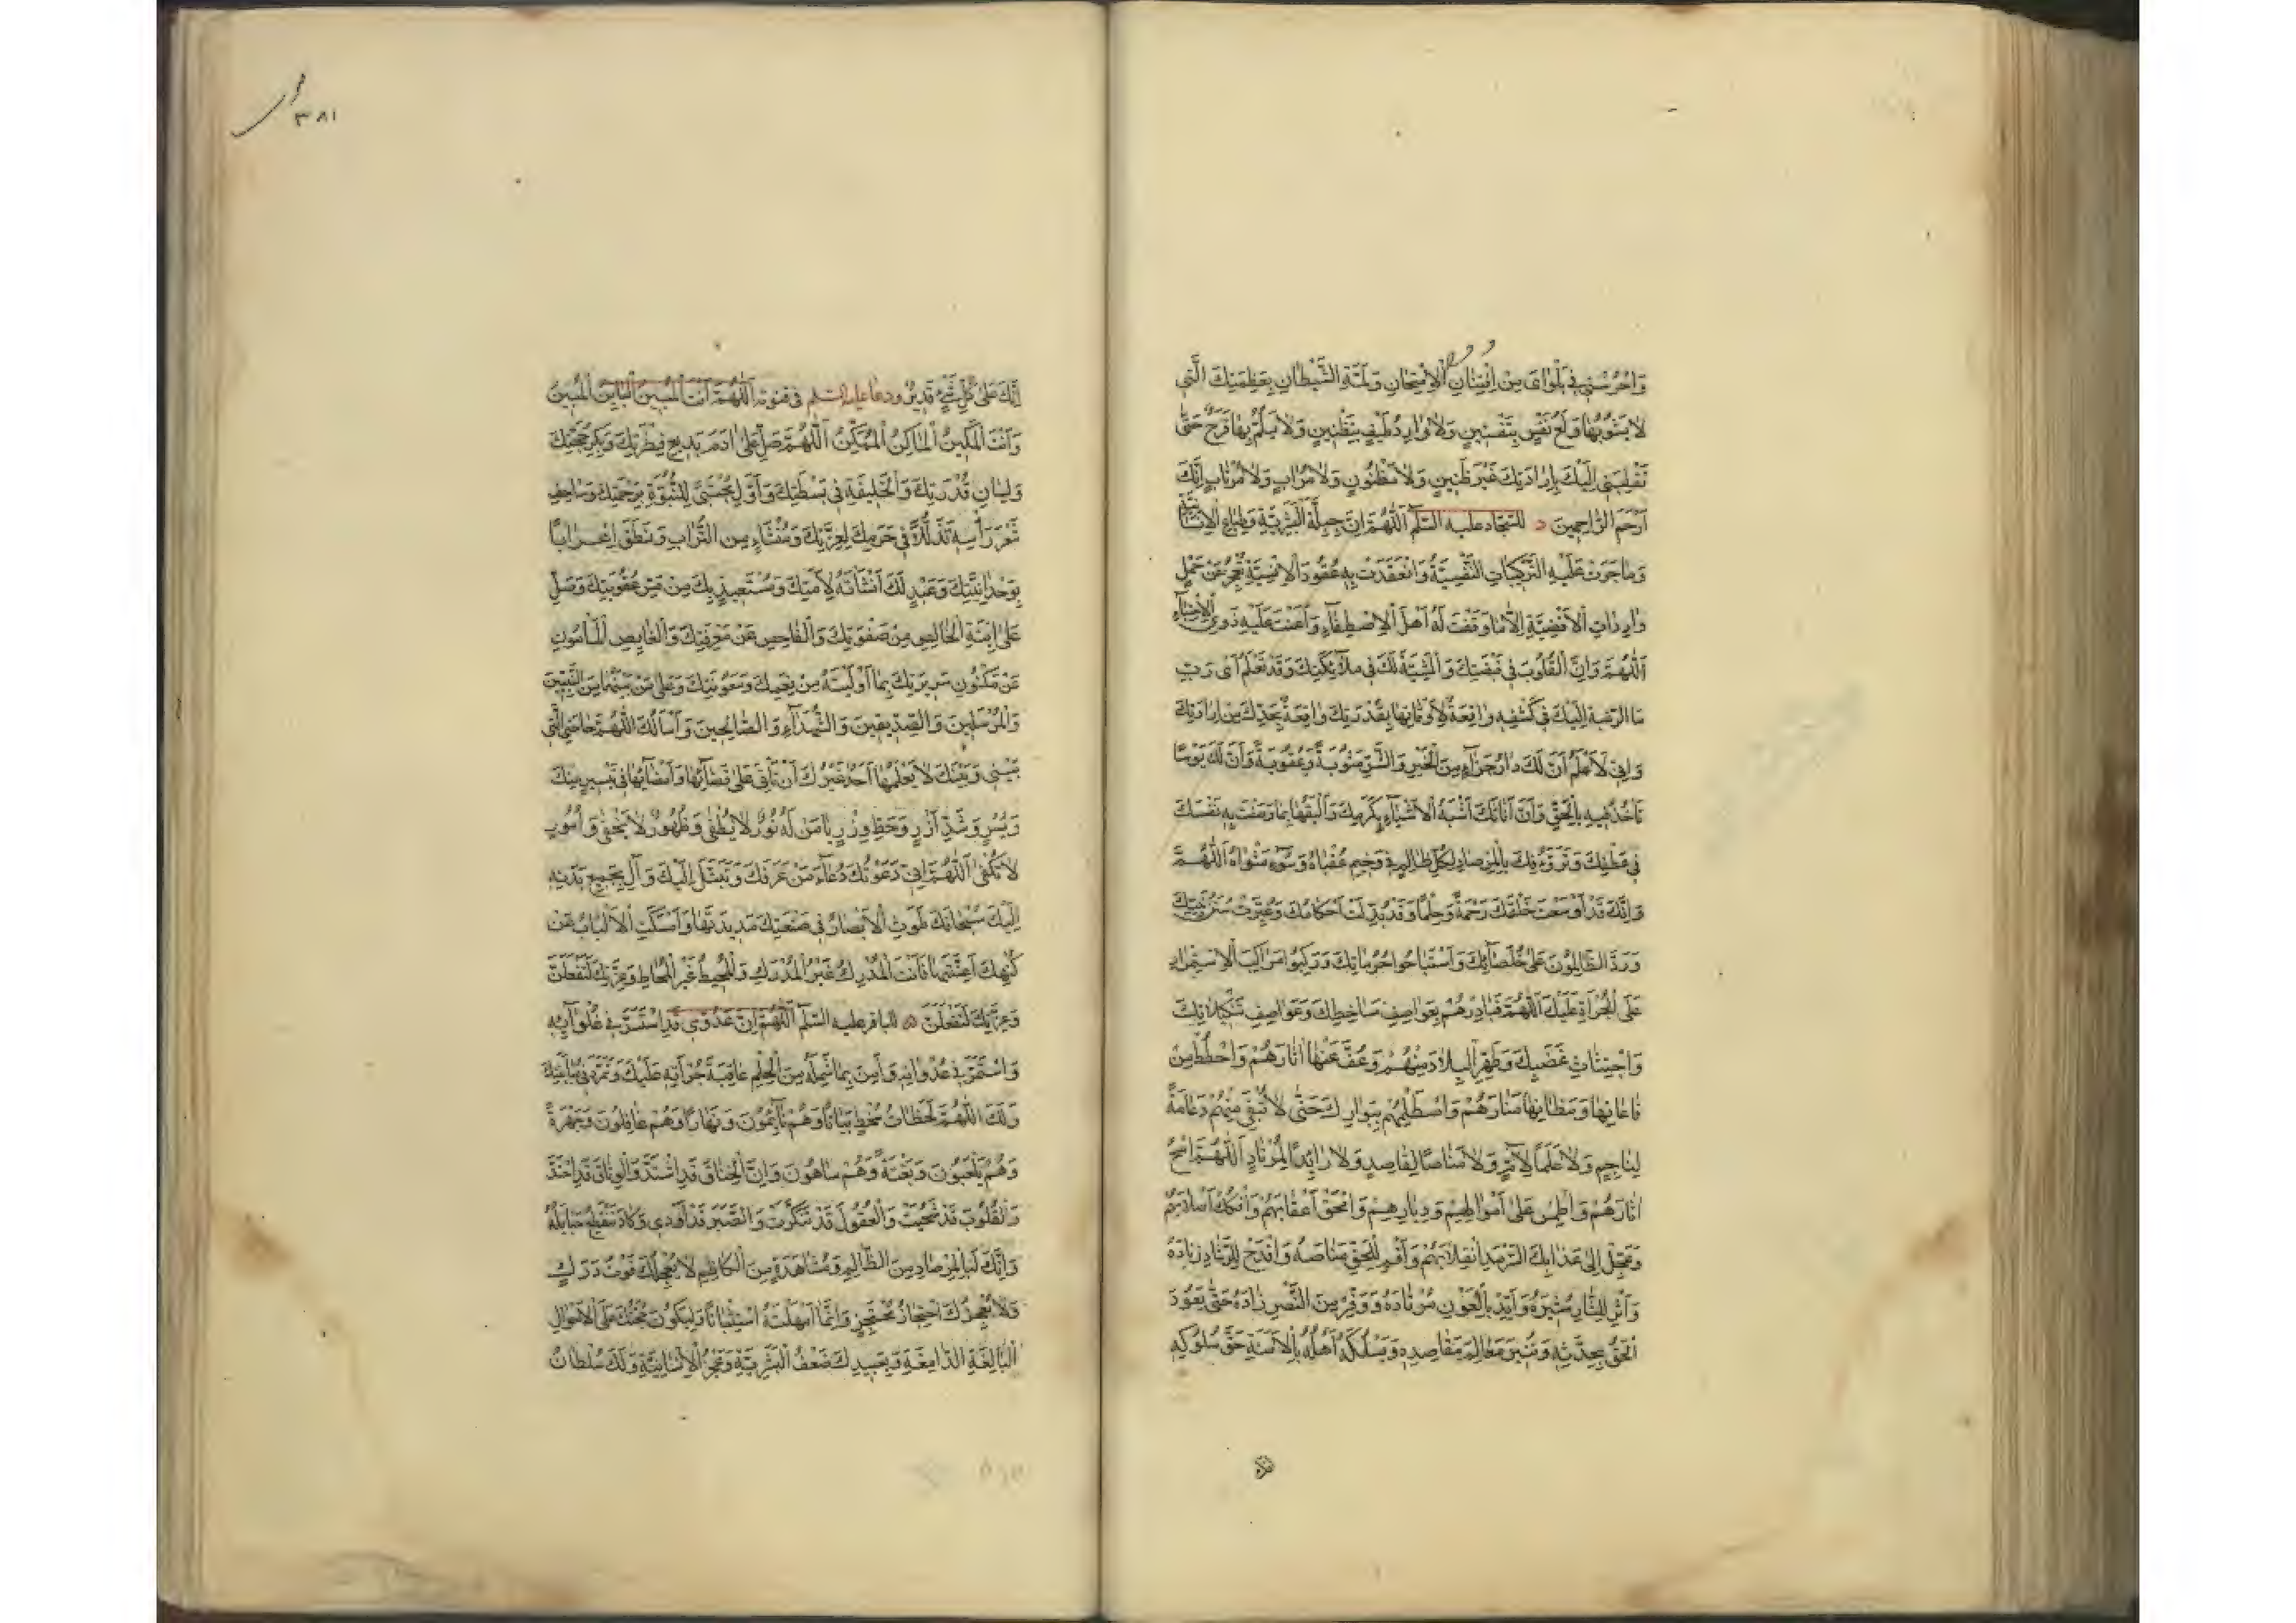 وَاحْرُسْنِي فِي بَلْوَايَ مِنِ افْتِنَانِ الْاِمْتِحَانِ وَلَمَّةِ الشَّيْطَانِ بِعَظَمَتِكَ الَّتِي
لَا يَشُوبُهَا وَلَعُ نَفْسٍ بِتَفْتِينٍ وَلَا وَارِدُ طَيْفٍ بِتَظْنِينٍ وَلَا يَلُمُّ بِهَا فَرَحٌ حَتَّى
تَقْلِبَنِي اِلَيْكَ بِاِرَادَتِكَ غَيْرَ ظَنِينٍ وَلَا مَظْنُونٍ وَلَا مُرَابٍ وَلَا مُرْتَابٍ اِنَّكَ
اَرْحَمُ الرَّاحِمِينَ د للسَّجَّاد عليه السَّلَم اَللّٰهُمَّ اِنَّ جِبِلَّةَ الْبَشَرِيَّةِ وَطِبَاعَ الْاِنْسَانِيَّةِ
وَمَا جَرَتْ عَلَيْهِ التَّرْكِيبَاتُ النَّفْسِيَّةُ وَانْعَقَدَتْ بِهِ عُقُودُ الْاِنْسِيَّةِ تَعْجِزُ عَنْ حَمْلِ
وَارِدَاتِ الْاَقْضِيَةِ اِلَّا مَا وَفَّقْتَ لَهُ اَهْلَ الْاِصْطِفَاءِ وَاَعَنْتَ عَلَيْهِ ذَوِي الْاِجْتِبَاءِ
اَللّٰهُمَّ وَاِنَّ الْقُلُوبَ فِي قَبْضَتِكَ وَالْمَشِيَّةَ لَكَ فِي مَلْاَتِكَ وَقَدْ تَعْلَمُ اَيْ رَبِّ
مَا الرَّغْبَةُ اِلَيْكَ فِي كَشْفِهِ وَاقِعَةٌ لِاَوْقَاتِهَا بِقُدْرَتِكَ وَاقِفَةٌ بِحَدِّكَ مِنْ اِرَادَتِكَ
وَاِنِّي لَاَعْلَمُ اَنَّ لَكَ دَارَ جَزَاءٍ مِنَ الْخَيْرِ وَالشَّرِّ مَثُوبَةً وَعُقُوبَةً وَاَنَّ لَكَ يَوْمًا
تَاْخُذُ فِيهِ بِالْحَقِّ وَاَنَّ اَنَاتَكَ اَشْبَهُ الْاَشْيَاءِ بِكَرَمِكَ وَاَلْيَقُهَا بِمَا وَصَفْتَ بِهِ نَفْسَكَ
فِي عَطْفِكَ وَتَرَؤُّفِكَ بِالْمِرْصَادِ لِكُلِّ ظَالِمٍ فِي وَخِيمِ عُقْبَاهُ وَسُوءِ مَثْوَاهُ اَللّٰهُمَّ
وَاِنَّكَ قَدْ اَوْسَعْتَ خَلْقَكَ رَحْمَةً وَحِلْمًا وَقَدْ بُدِّلَتْ اَحْكَامُكَ وَغُيِّرَتْ سُنَنُ نَبِيِّكَ
وَمَرَدَ الظَّالِمُونَ عَلَى خُلَصَائِكَ وَاسْتَبَاحُوا حُرُمَاتِكَ وَرَكِبُوا مَرَاكِبَ الْاِسْتِمْرَارِ
عَلَى الْجُرْاَةِ عَلَيْكَ اَللّٰهُمَّ فَبَادِرْهُمْ بِقَوَاصِفِ سَاخِطِكَ وَعَوَاصِفِ تَنْكِيلَاتِكَ
وَاجْتِثَاثِ غَضَبِكَ وَطَهِّرِ الْبِلَادَ مِنْهُمْ وَعُفَّ عَنْهَا اٰثَارَهُمْ وَاحْطُطْ مِنْ
قَاعَاتِهَا وَمَظَانِّهَا مَنَارَهُمْ وَاصْطَلِمْهُمْ بِبَوَارِكَ حَتَّى لَا تُبْقِيَ مِنْهُمْ دِعَامَةً
لِنَاجِمٍ وَلَا عَلَمًا لِاٰمٍّ وَلَا مَنَاصًا لِقَاصِدٍ وَلَا رَائِدًا لِمُرْتَادٍ اَللّٰهُمَّ امْحُ
اٰثَارَهُمْ وَاطْمِسْ عَلَى اَمْوَالِهِمْ وَدِيَارِهِمْ وَامْحَقْ اَعْقَابَهُمْ وَافْكُكْ اَصْلَابَهُمْ
وَعَجِّلْ اِلَى عَذَابِكَ السَّرْمَدِ انْقِلَابَهُمْ وَاَقِمْ لِلْحَقِّ مَنَاصِبَهُ وَاقْدَحْ لِلرَّشَادِ زِنَادَهُ
وَاَثِرْ لِلثَّارِ مُثِيرَهُ وَاَيِّدْ بِالْعَوْنِ مُرْتَادَهُ وَوَفِّرْ مِنَ النَّصْرِ زَادَهُ حَتَّى يَعُودَ
الْحَقُّ بِحِدَّتِهِ وَيُنِيرَ مَعَالِمَ مَقَاصِدِهِ وَيَسْلُكَهُ اَهْلُهُ بِالْاَمَنَةِ حَقَّ سُلُوكِهِ
٣٨١
اِنَّكَ عَلَى كُلِّ شَيْءٍ قَدِيرٌ ودعا عليه السلم في قنوته اَللّٰهُمَّ اَنْتَ الْمُبِينُ الْبَايِنُ الْمُبِينُ
وَاَنْتَ الْمَكِينُ الْمَاكِنُ الْمُمَكِّنُ اَللّٰهُمَّ صَلِّ عَلَى اٰدَمَ بَدِيعِ فِطْرَتِكَ وَبِكْرِ حُجَّتِكَ
وَلِسَانِ قُدْرَتِكَ وَالْخَلِيفَةِ فِي بَسْطَتِكَ وَاَوَّلِ مُجْتَبًى لِلنُّبُوَّةِ بِرَحْمَتِكَ وَسَاحِفِ
شَعْرِ رَاْسِهِ تَذَلُّلًا فِي حَرَمِكَ لِعِزَّتِكَ وَمُنْشَاءٍ مِنَ التُّرَابِ وَنَطَقَ اِعْرَابًا
بِوَحْدَانِيَّتِكَ وَعَبْدٍ لَكَ اَنْشَاْتَهُ لِاُمَّتِكَ وَمُسْتَعِيذٍ بِكَ مِنْ مَسِّ عُقُوبَتِكَ وَصَلِّ
عَلَى ابْنِهِ الْخَالِصِ مِنْ صَفْوَتِكَ وَالْفَاحِصِ عَنْ مَعْرِفَتِكَ وَالْغَايِصِ الْمَاْمُونِ
عَنْ مَكْنُونِ سَرِيرَتِكَ بِمَا اَوْلَيْتَهُ مِنْ نِعَمِكَ وَمَعُونَتِكَ وَعَلَى مَنْ بَيْنَهُمَا مِنَ النَّبِيِّينَ
وَالْمُرْسَلِينَ وَالصِّدِّيقِينَ وَالشُّهَدَاءِ وَالصَّالِحِينَ وَاَسْاَلُكَ اَللّٰهُمَّ حَاجَتِيَ الَّتِي
بَيْنِي وَبَيْنَكَ لَا يَعْلَمُهَا اَحَدٌ غَيْرُكَ اَنْ تَاْتِيَ عَلَى قَضَائِهَا وَاِمْضَائِهَا فِي يُسْرٍ مِنْكَ
وَيُسْرٍ وَشَدِّ اَزْرٍ وَحَطِّ وِزْرٍ يَا مَنْ لَهُ نُورٌ لَا يُطْفَى وَظُهُورٌ لَا يَخْفَى وَاُمُورٌ
لَا تُكْفَى اَللّٰهُمَّ اِنِّي دَعَوْتُكَ دُعَاءَ مَنْ عَرَفَكَ وَتَبَتَّلَ اِلَيْكَ وَاٰلَ بِجَمِيعِ بَدَنِهِ
اِلَيْكَ سُبْحَانَكَ طَوَتِ الْاَبْصَارُ فِي صَنْعَتِكَ مَدِيدَتَهَا وَاَمْسَكَتِ الْاَلْبَابُ عَنْ
كُنْهِكَ اَعِنَّتَهَا فَاَنْتَ الْمُدْرِكُ غَيْرُ الْمُدْرَكِ وَالْمُحِيطُ غَيْرُ الْمُحَاطِ وَعِزَّتِكَ لَتَفْعَلَنَّ
وَعِزَّتِكَ لَتَفْعَلَنَّ ه للباقر عليه السَّلَم اَللّٰهُمَّ اِنَّ عَدُوِّي قَدِ اسْتَسَنَّ فِي غُلَوَائِهِ
وَاسْتَمَرَّ فِي عُدْوَانِهِ وَاَمِنَ بِمَا شَمِلَهُ مِنَ الْحِلْمِ عَاقِبَةَ جُرْاَتِهِ عَلَيْكَ وَتَمَرَّدَ فِي مُبَايَنَتِكَ
وَلَكَ اَللّٰهُمَّ لَحَظَاتُ سَخَطٍ بَيَاتًا وَهُمْ نَائِمُونَ وَنَهَارًا وَهُمْ غَافِلُونَ وَجَهْرَةً
وَهُمْ يَلْعَبُونَ وَبَغْتَةً وَهُمْ سَاهُونَ وَاِنَّ الْخِنَاقَ قَدِ اشْتَدَّ وَالْوِثَاقَ قَدِ احْتَدَّ
وَالْقُلُوبَ قَدْ شُجِيَتْ وَالْعُقُولَ قَدْ تَنَكَّرَتْ وَالصَّبْرَ قَدْ اَوْدَى وَكَادَ تَنْقَطِعُ حَبَائِلُهُ
وَاِنَّكَ لَبِالْمِرْصَادِ مِنَ الظَّالِمِ وَمُشَاهَدَةٍ مِنَ الْكَاظِمِ لَا يُعْجِلُكَ فَوْتُ دَرَكٍ
وَلَا يُعْجِزُكَ احْتِجَازُ مُحْتَجِزٍ وَاِنَّمَا اَمْهَلْتَهُ اسْتِثْبَاتًا وَلِيَكُونَ حُجَّتُكَ عَلَى الْاَحْوَالِ
الْبَالِغَةَ الدَّامِغَةَ وَبِعَبِيدِكَ ضَعْفُ الْبَشَرِيَّةِ وَعَجْزُ الْاِنْسَانِيَّةِ وَلَكَ سُلْطَانُ